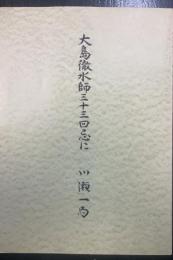 大島徹水師三十三回忌に 川瀬一馬